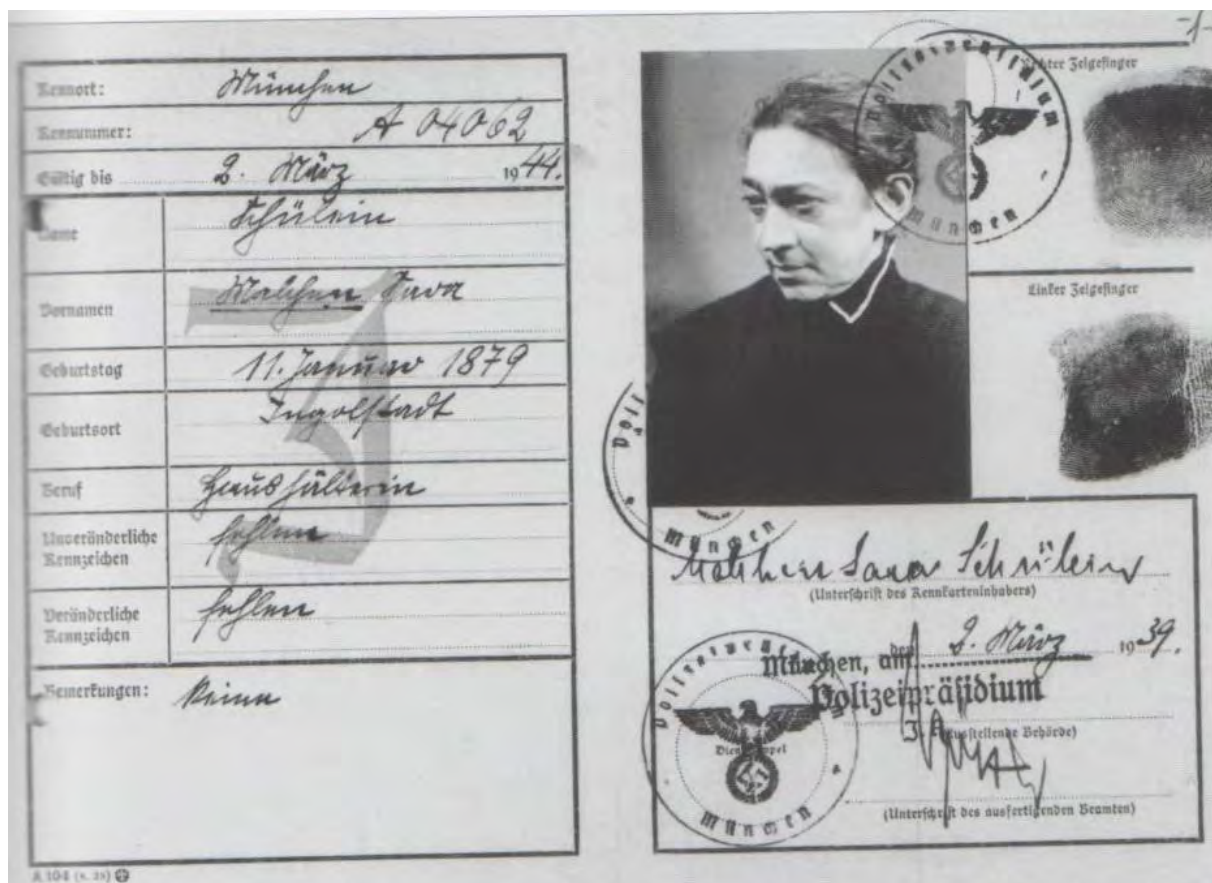 Kennort: München
Kennummer: A 04062
Gültig bis 2. März 1944.
Name Schülein
Vornamen Malchen Sara
Geburtstag 11. Januar 1879
Geburtsort Ingolstadt
Beruf Haushälterin
Unveränderliche Kennzeichen fehlen
Veränderliche Kennzeichen fehlen
Bemerkungen: Keine
J
-1-
Rechter Zeigefinger
Polizeipräsidium
München
Linker Zeigefinger
München
Malchen Sara Schülein
(Unterschrift des Kennkarteninhabers)
München, am 2. März 1939.
Polizeipräsidium
(Ausstellende Behörde)
Polizeipräsidium
Dienststempel
München
(Unterschrift des ausfertigenden Beamten)